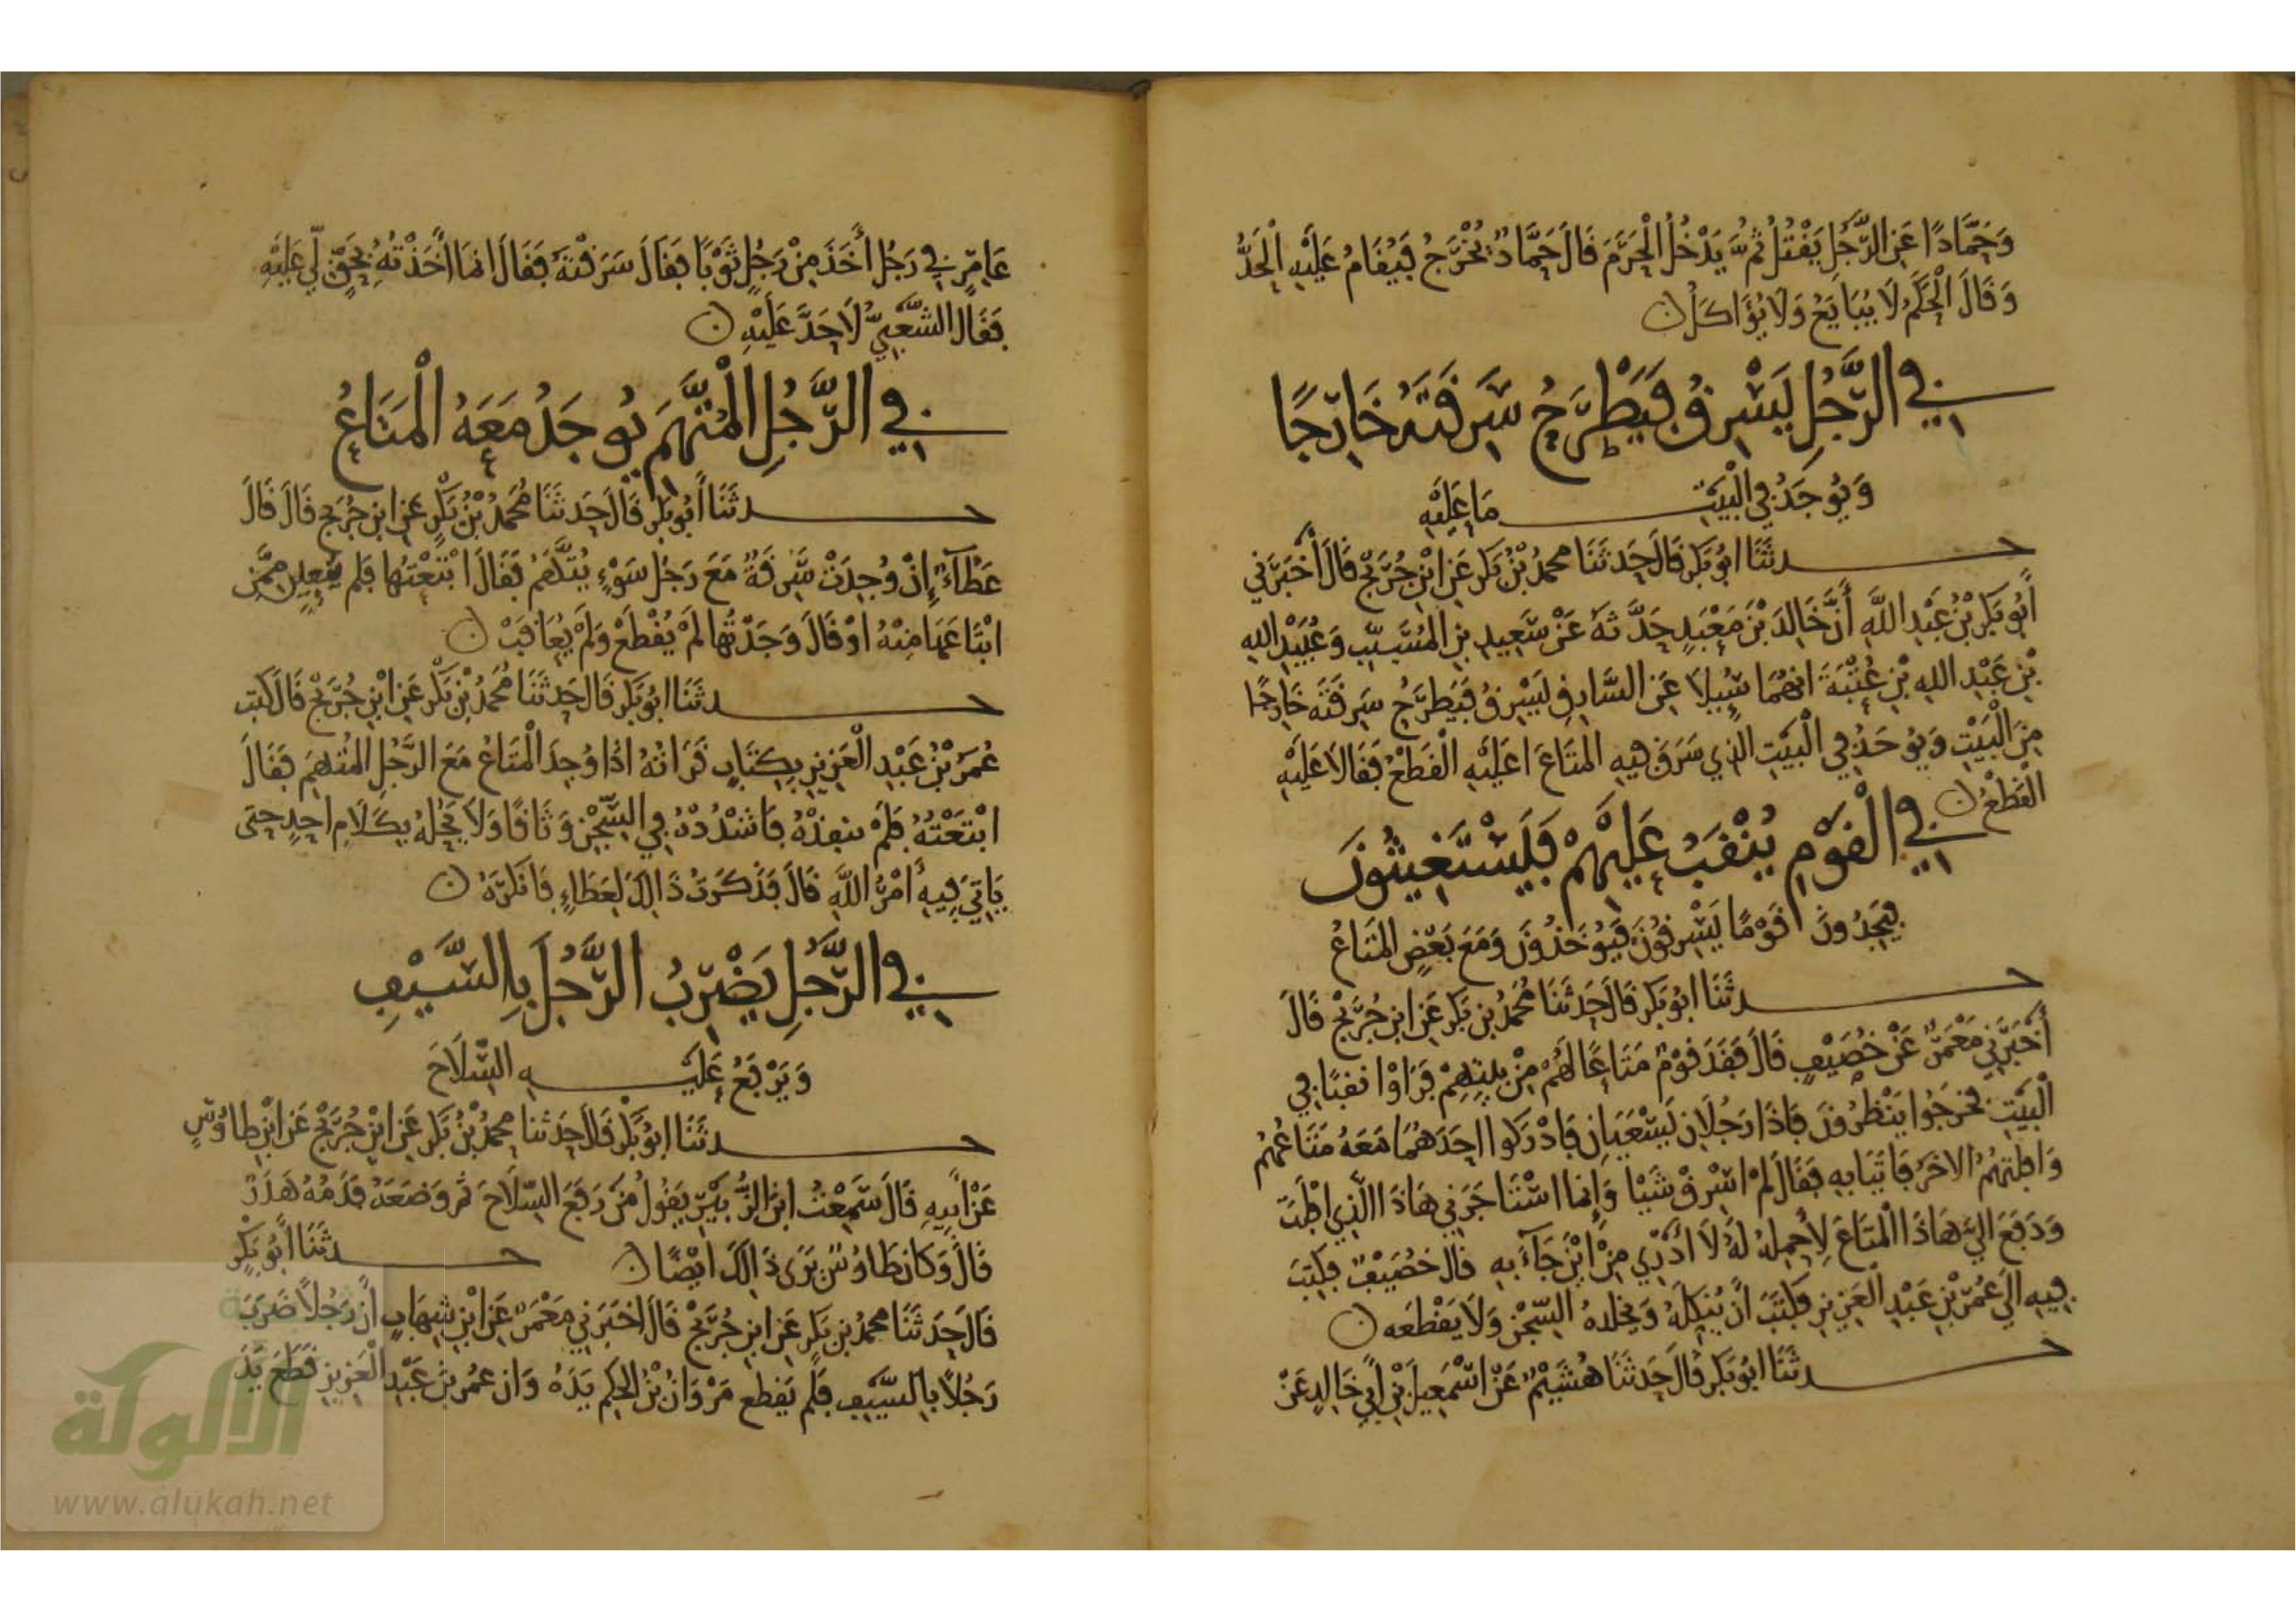 وَحَمَّادًا عَنِ الرَّجُلِ يَقْتُلُ ثُمَّ يَدْخُلُ الْحَرَمَ قَالَ حَمَّادٌ يُخْرَجُ فَيُقَامُ عَلَيْهِ الْحَدُّ
وَقَالَ الْحَكَمُ لَا يُبَايَعُ وَلَا يُؤَاكَلُ
في الرَّجُلِ يَسْرِقُ فَيَطْرَحُ سَرِقَتَهُ خَارِجًا
وَيُوجَدُ فِي الْبَيْتِ مَا عَلَيْهِ
حدثَنَا ابُو بَكر قَالَ حَدثَنَا محمدُ بْنُ بَكر عَنِ ابْنِ جُرَيْجٍ قَالَ أَخْبَرَنِي
أَبُو بَكر بْنُ عَبْدِ اللَّهِ أَنَّ خَالِدَ بْنَ مَعْبَدٍ حَدَّثَهُ عَنْ سَعِيدِ بنِ المُسَيِّبِ وَعُبَيْدِ اللهِ
بْنِ عَبْدِ اللهِ بْنِ عُتْبَةَ انهُمَا سُيِلَا عَنِ السَّارِقِ يَسْرِقُ فَيَطرَحُ سَرِقَتَه خَارِجًا
مِنَ الْبَيْتِ وَيُوجَدُ فِي الْبَيْتِ الَّذِي سَرَقَ فِيهِ المَتَاعَ اعَلَيْهِ الْقَطْعُ فَقَالَا عَلَيْهِ
الْقَطْعُ
في الْقَوْمِ يُنْقَبُ عَلَيْهِمْ فَيَسْتَغِيثُونَ
فيَجِدُونَ قَوْمًا يَسْرِقُونَ فَيُوخَذُونَ وَمَعَ بَعْضٍ المَتَاعُ
حدثَنَا ابُو بَكر قَالَ حَدثَنَا مُحَمدُ بن بَكر عَنِ ابنِ جُرَيْجٍ قَالَ
أَخْبَرَنِي مَعْمَرٌ عَنْ خُصَيْفٍ قَالَ فَقَدَ قَوْمٌ مَتَاعًا لَهُمْ مِنْ بيتِهِمْ فَرَاوْا نقبًا فِي
الْبَيْتِ فخرَجُوا يَنْظُرُونَ فَاذَا رَجُلَانِ يَسْعَيَانِ فَادْرَكوا احَدَهُمَا مَعَهُ مَتَاعُهُمْ
وَافلتَهُمُ الاخَرُ فَاتَيَا بِهِ فَقَالَ لمْ اسْرِقْ شَيْيا وَإنما اسْتَاجَرَنِي هَاذَا الَّذِي افلَتَ
وَدَفَعَ الَيَّ هَاذَا الْمَتَاعَ لِأَحْمِلَهُ لَهُ لَا أَدْرِي مِنْ ايْنَ جَاءَ بِهِ قَالَ خُصَيْفٌ فكتبَ
فِيهِ الَى عُمَرَ بْنِ عَبْدِ الْعَزِيزِ فَكَتَبَ أَنْ يُنَكِّلَهُ وَيخلدهُ السِّجْنَ وَلَا يَقْطَعَه
حدثَنَا ابُو بَكر قَالَ حَدثَنَا هُشَيْمٌ عَنْ اسْمعِيلَ بْنِ أَبِي خَالِدٍ عَنْ
عَامِرٍ فِي رَجُل أَخَذَ مِنْ رَجُلٍ ثَوْبًا فَقَالَ سَرَقْتَهُ فَقَالَ انمَا أَخَذْتُهُ بِحَقٍّ لِّي عَلَيْهِ
فَقَالَ الشَّعْبِيُّ لَا حَدَّ عَلَيْهِ
في الرَّجُلِ الْمُتَّهَمِ يُوجَدُ مَعَهُ الْمَتَاعُ
حدثَنَا أَبُو بَكر قَالَ حَدثَنَا مُحَمدُ بْنُ بَكْرٍ عَنِ ابنِ جُرَيجٍ قَالَ قَالَ
عَطَاءٌ إِنْ وُجِدَتْ سَرِقَةٌ مَعَ رَجُلِ سَوْءٍ يُتَّهَمُ فَقَالَ ابْتَعْتُهَا فلم يعين ممَّنِ
ابْتَاعَهَا مِنْهُ اوْ قَالَ وَجَدْتُهَا لَمْ يُقْطَعْ وَلَمْ يُعَاقَبْ
حدثَنَا ابُو بَكر قَال حَدثَنَا مُحمدُ بْنُ بَكر عَنِ ابْنِ جُرَيْجٍ قَالَ كتب
عُمَرُ بْنُ عَبْدِ الْعَزِيزِ بِكِتَابٍ قَرَاتهُ اذَا وُجِدَ الْمَتَاعُ مَعَ الرَّجُلِ المُتهَمِ فَقَالَ
ابْتَعْتُهُ فَلَمْ ينفذْهُ فَاشْدُدْهُ فِي السِّجْنِ وَثَاقًا وَلَا يحلهُ بِكَلَامِ احَدٍ حَتى
يَاتِيَ فِيهِ أَمْرُ اللَّهِ قَالَ فَذَكَرْتُ ذَالِكَ لِعَطَاءٍ فَانكَرَهُ
في الرَّجُلِ يَضْرِبُ الرَّجُلَ بِالسَّيْفِ
وَيَرْفَعُ عَلَيْهِ السِّلَاحَ
حدثَنَا ابُو بَكْر قَالَ حَدَثنا محمدُ بْنُ بَكر عَنِ ابْنِ جُرَيْجٍ عَنِ ابْنِ طاوُسٍ
عَنْ ابِيهِ قَالَ سَمِعْتُ ابنَ الزُّبَيْرِ يَقُولُ مَنْ رَفَعَ السِّلَاحَ ثم وَضَعَهُ فَدَمُهُ هَدَرٌ
قَالَ وَكَانَ طَاوُسٌ يَرَى ذَالِكَ ايْضًا حدثَنَا أَبُو بَكْرٍ
قَالَ حَدثَنَا محمدُ بن بَكر عَنِ ابنِ جُرَيْجٍ قَالَ اخبَرَنِي مَعْمَرٌ عَنِ ابْنِ شِهَابٍ أَنَّ رَجُلًا ضَرَبَ
رَجُلًا بِالسَّيْفِ فَلَمْ يَقطع مَرْوَانُ بْنُ الحكم يَدَهُ وَان عمَر بْنَ عَبْدِ الْعَزِيزِ قَطَعَ يَدَ
الألوكة
www.alukah.net